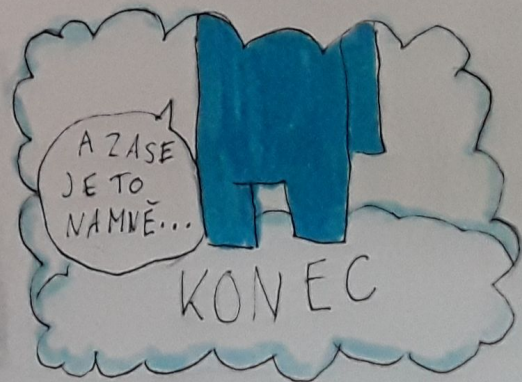 A ZASE
JE TO
NA MNĚ...
KONEC